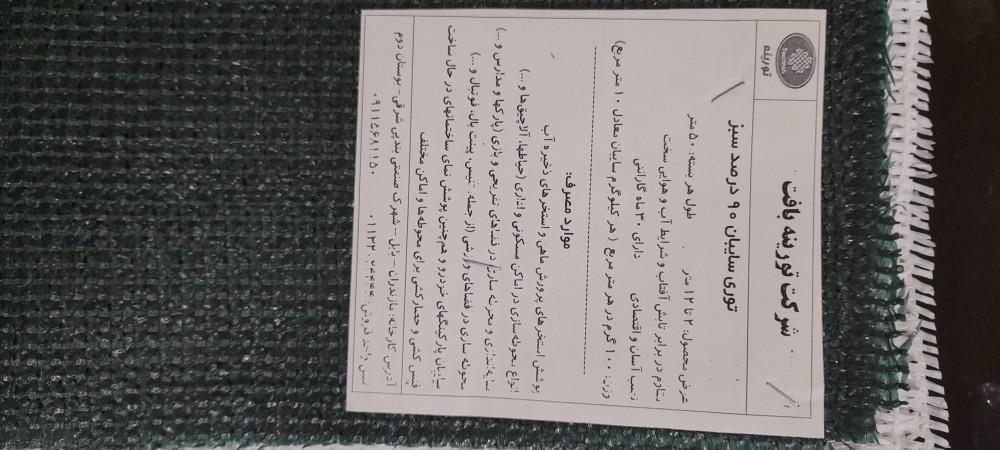 تورینه
شرکت تورینه بافت
توری سایبان ۹۰ درصد سبز
عرض محصول: ۲ تا ۱۲ متر طول هر بسته: ۵۰ متر
مقاوم در برابر تابش آفتاب و شرایط آب و هوایی سخت
نصب آسان و اقتصادی دارای ۳۰ ماه گارانتی
وزن: ۱۰۰ گرم در هر متر مربع ( هر کیلوگرم سایبان معادل ۱۰ متر مربع)
موارد مصرف:
پوشش استخرهای پرورش ماهی و استخرهای ذخیره آب
انواع محوطه‌سازی در اماکن مسکونی و اداری (حیاطها، آلاچیق‌ها و ...)
سایه‌اندازی و محوطه سازی در فضاهای تفریحی و بازی (پارکها و مدارس و ...)
محوطه سازی در فضاهای ورزشی (از جمله، تنیس، پینت بال، فوتبال و ...)
سایبان پارکینگهای خودرو و همچنین پوشش نمای ساختمانهای در حال ساخت
فنس کشی و حصارکشی برای محوطه‌ها و اماکن مختلف
آدرس کارخانه: مازندران - بابل - شهرک صنعتی بندپی شرقی - بوستان دوم
فروش: